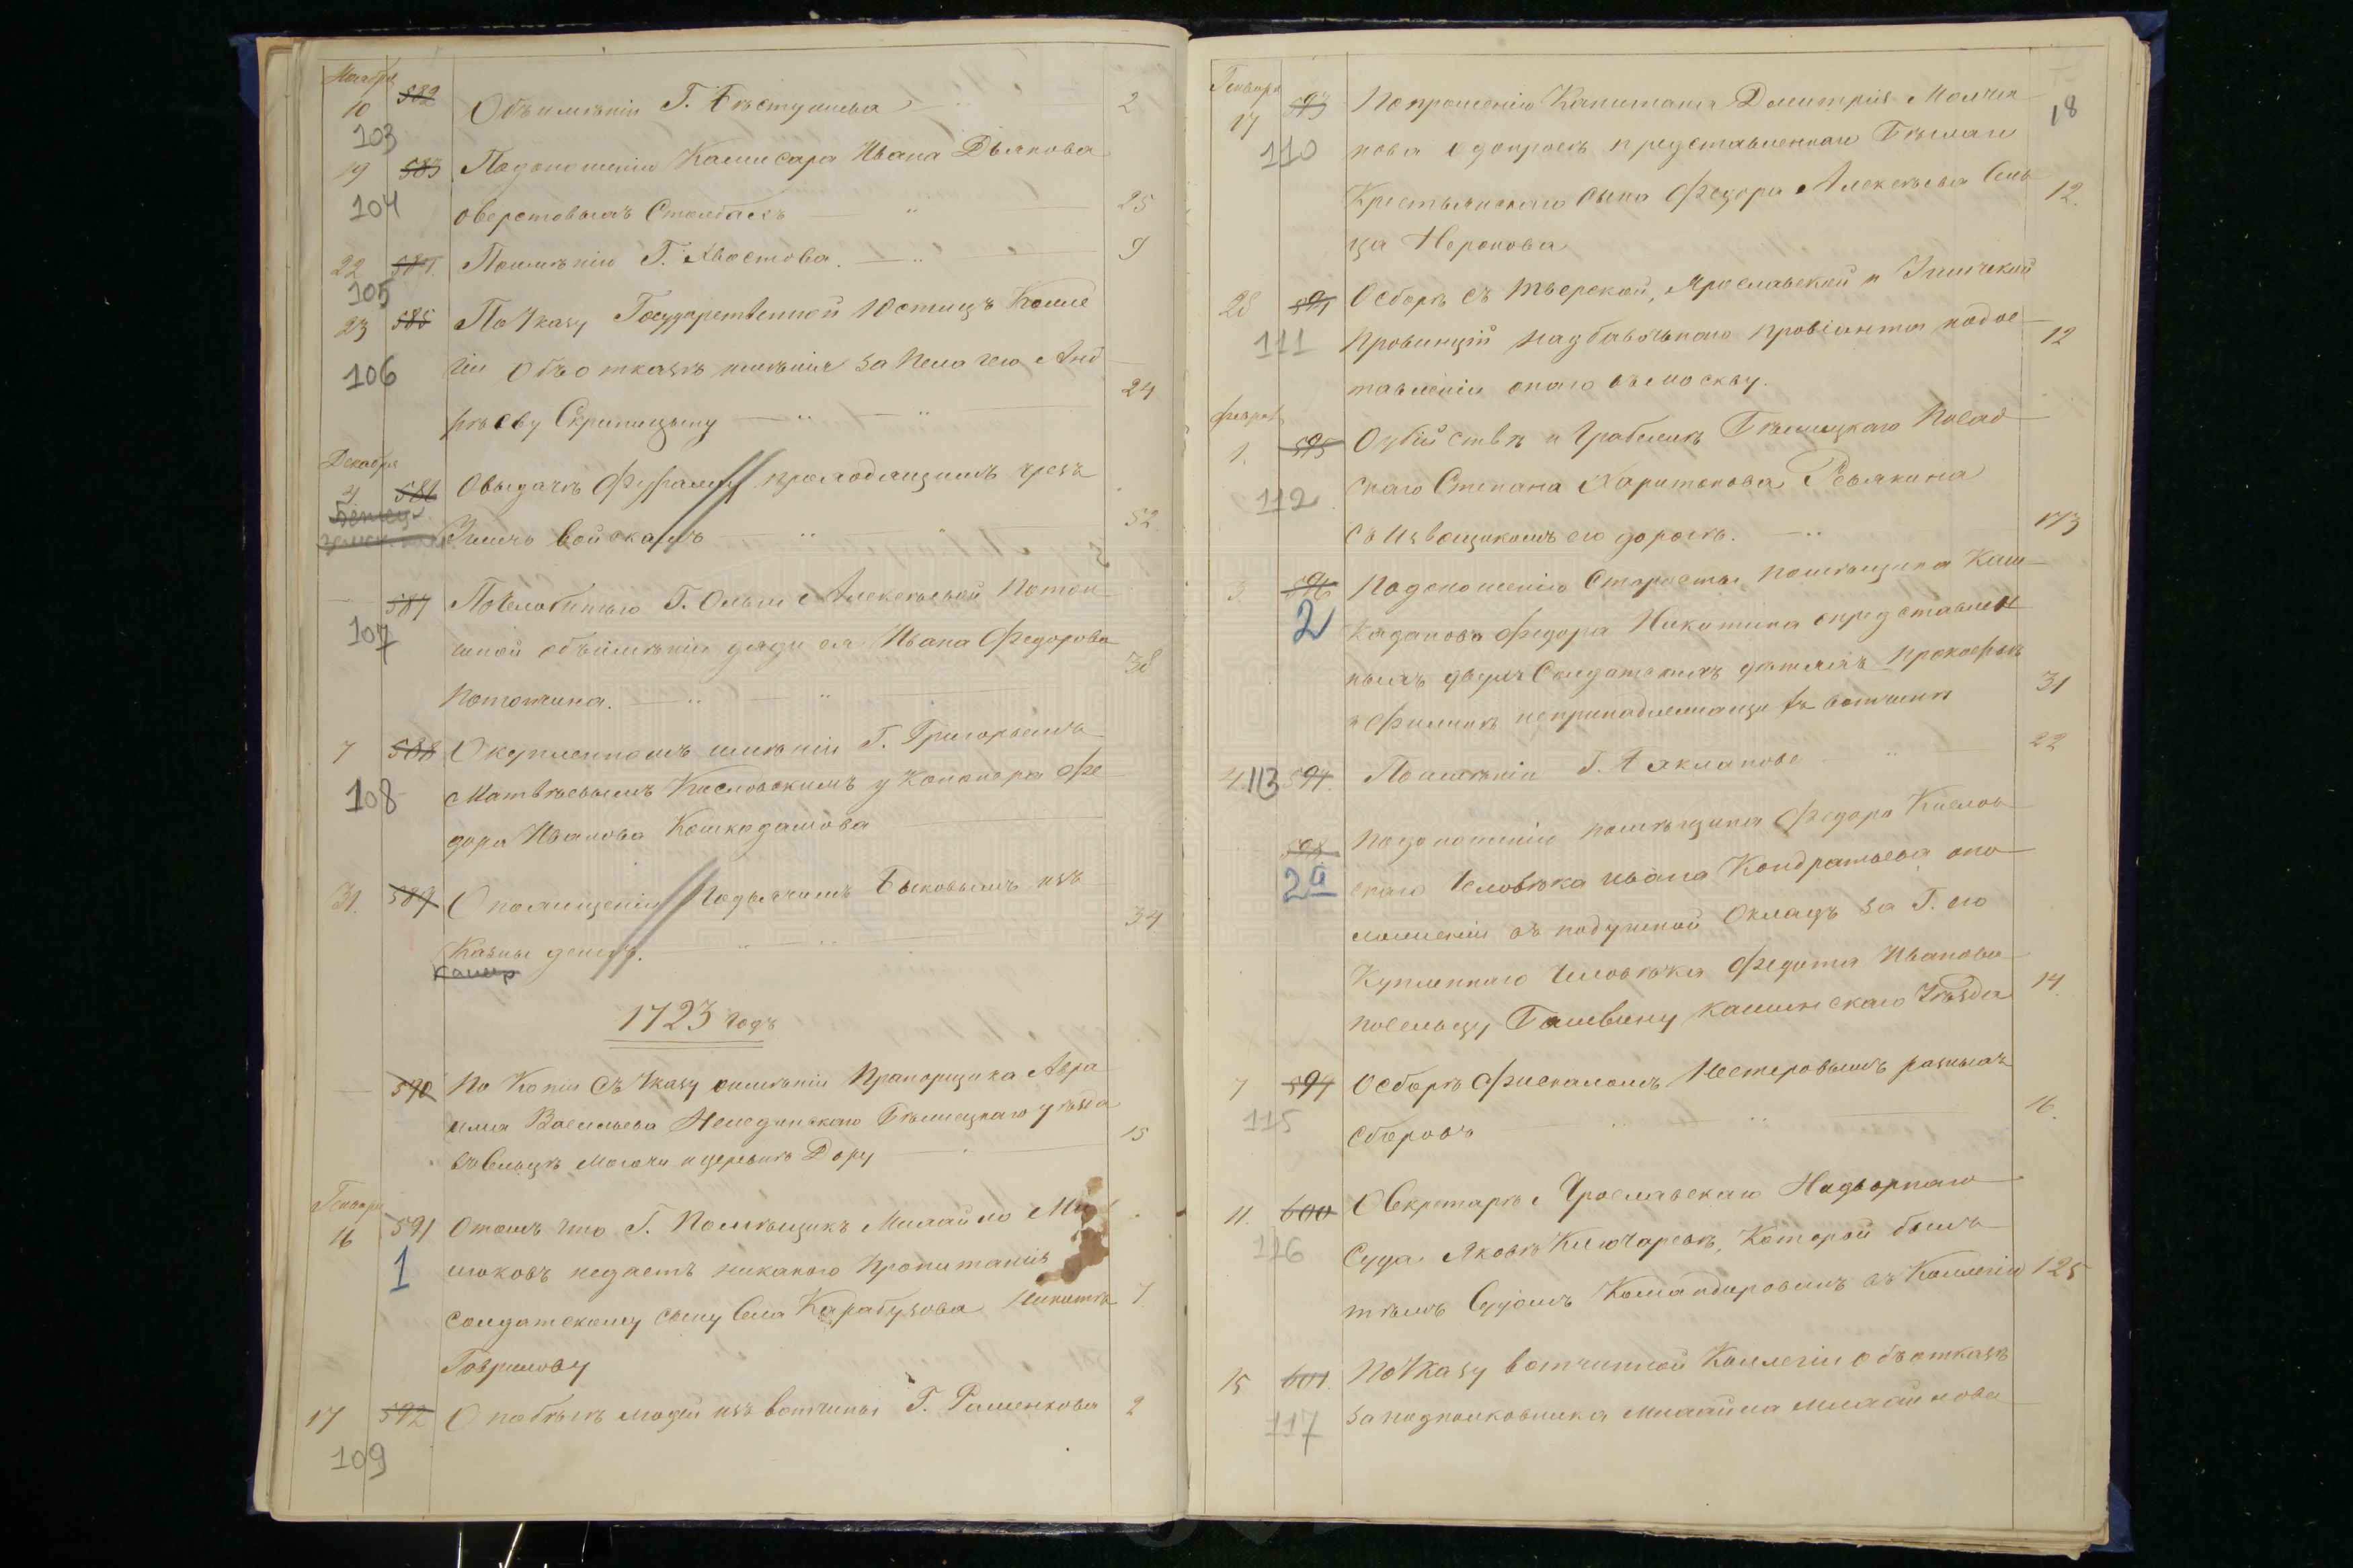 Ноября
10 582 Объ имѣніи Г. Бѣстушева 2
103
19 583 По доношенію Камисара Ивана Дьякова
104
оверстовыхъ Столбахъ 25
22 584. По имѣнію Г. Хвостова. 9
105
23 585 По Указу Государственной Юстицъ Колле
106
гіи Объ отказѣ имѣнія за Пелагею Анд 24
рѣеву Скрипицыну
Декабря
4 586 О выдачѣ Фуража проходящимъ чрезъ
Бежец
Углич войскамъ 52
587 По Челобитью Г. Ольги Алексѣевой Потоп
107
шной объ имѣніи дяди ея Ивана Федорова 38
Потопчина.
7 588 О купленномъ имѣніи Г. Григорьемъ
108
Матвѣевымъ Кисловскимъ у Капонера Фе
дора Иванова Кошкадамова
31. 589 О похищеніи Подьячимъ Быковымъ изъ 34
Казны денегъ.
камер
1723 годъ
590 По Копіи Съ Указу о имѣніи Прапорщика Авра
ама Васильева Нелединскаго Бѣжецкаго уѣзда 15
въ Сельцѣ Могочи и деревнѣ Дору
Генваря
16 591 О томъ что Г. Помѣщикъ Михайло Ми
1
люковъ недаетъ никакого Пропитанія
Солдатскому сыну Села Карабузова Никитѣ 7.
Гаврилову
17 592 О побѣгѣ людей изъ вотчины Г. Раменкова 2
109
Генваря
17 593 По прошенію Капитана Дмитрія Молча 18
110
нова о допросѣ представленнаго Бѣглаго
Крестьянскаго сына Федора Алексѣева Сель 12.
ца Неронова
28 594 О сборѣ съ Тверской, Ярославской и Угличкой
111
Провинцій надбавочнаго провіанта и о дос 12
тавленіи онаго въ москву.
Феврал
1. 595 О убійствѣ и Грабежѣ Бѣжицкаго Посад
112
скаго Степана Харитонова Ревякина
съ извощикомъ его дорогѣ. 173
3 596 По доношенію Старосты помѣщика Каш
2
кадамова Федора Никитина о представлен
ныхъ двухъ Солдатскихъ дѣтяхъ Прокофьѣ
и Филипѣ непринадлежащи въ вотчинѣ 31
4. 113 597. По имѣнію Г. Баклановс 22
598 По доношенію помѣщика Федора Кислов
2а
скаго Человѣка Ивана Кондратьева о по
ложеніи въ подушной Окладъ за Г. его
Купленнаго Человѣка Федота Иванова 14
посельцу Кашинскаго Уѣзда
7 599 О сборѣ Фискаломъ Нестеровымъ разныхъ
115
Сборовъ 16.
11. 600 О Секретарѣ Ярославскаго Надворнаго
116
Суда Яковѣ Ключаревѣ, Которой былъ
тѣмъ Судомъ Командированъ въ Коллегію 125
15 601. По Указу вотчинной Коллегіи объ отказѣ
117
за подполковника Михайла